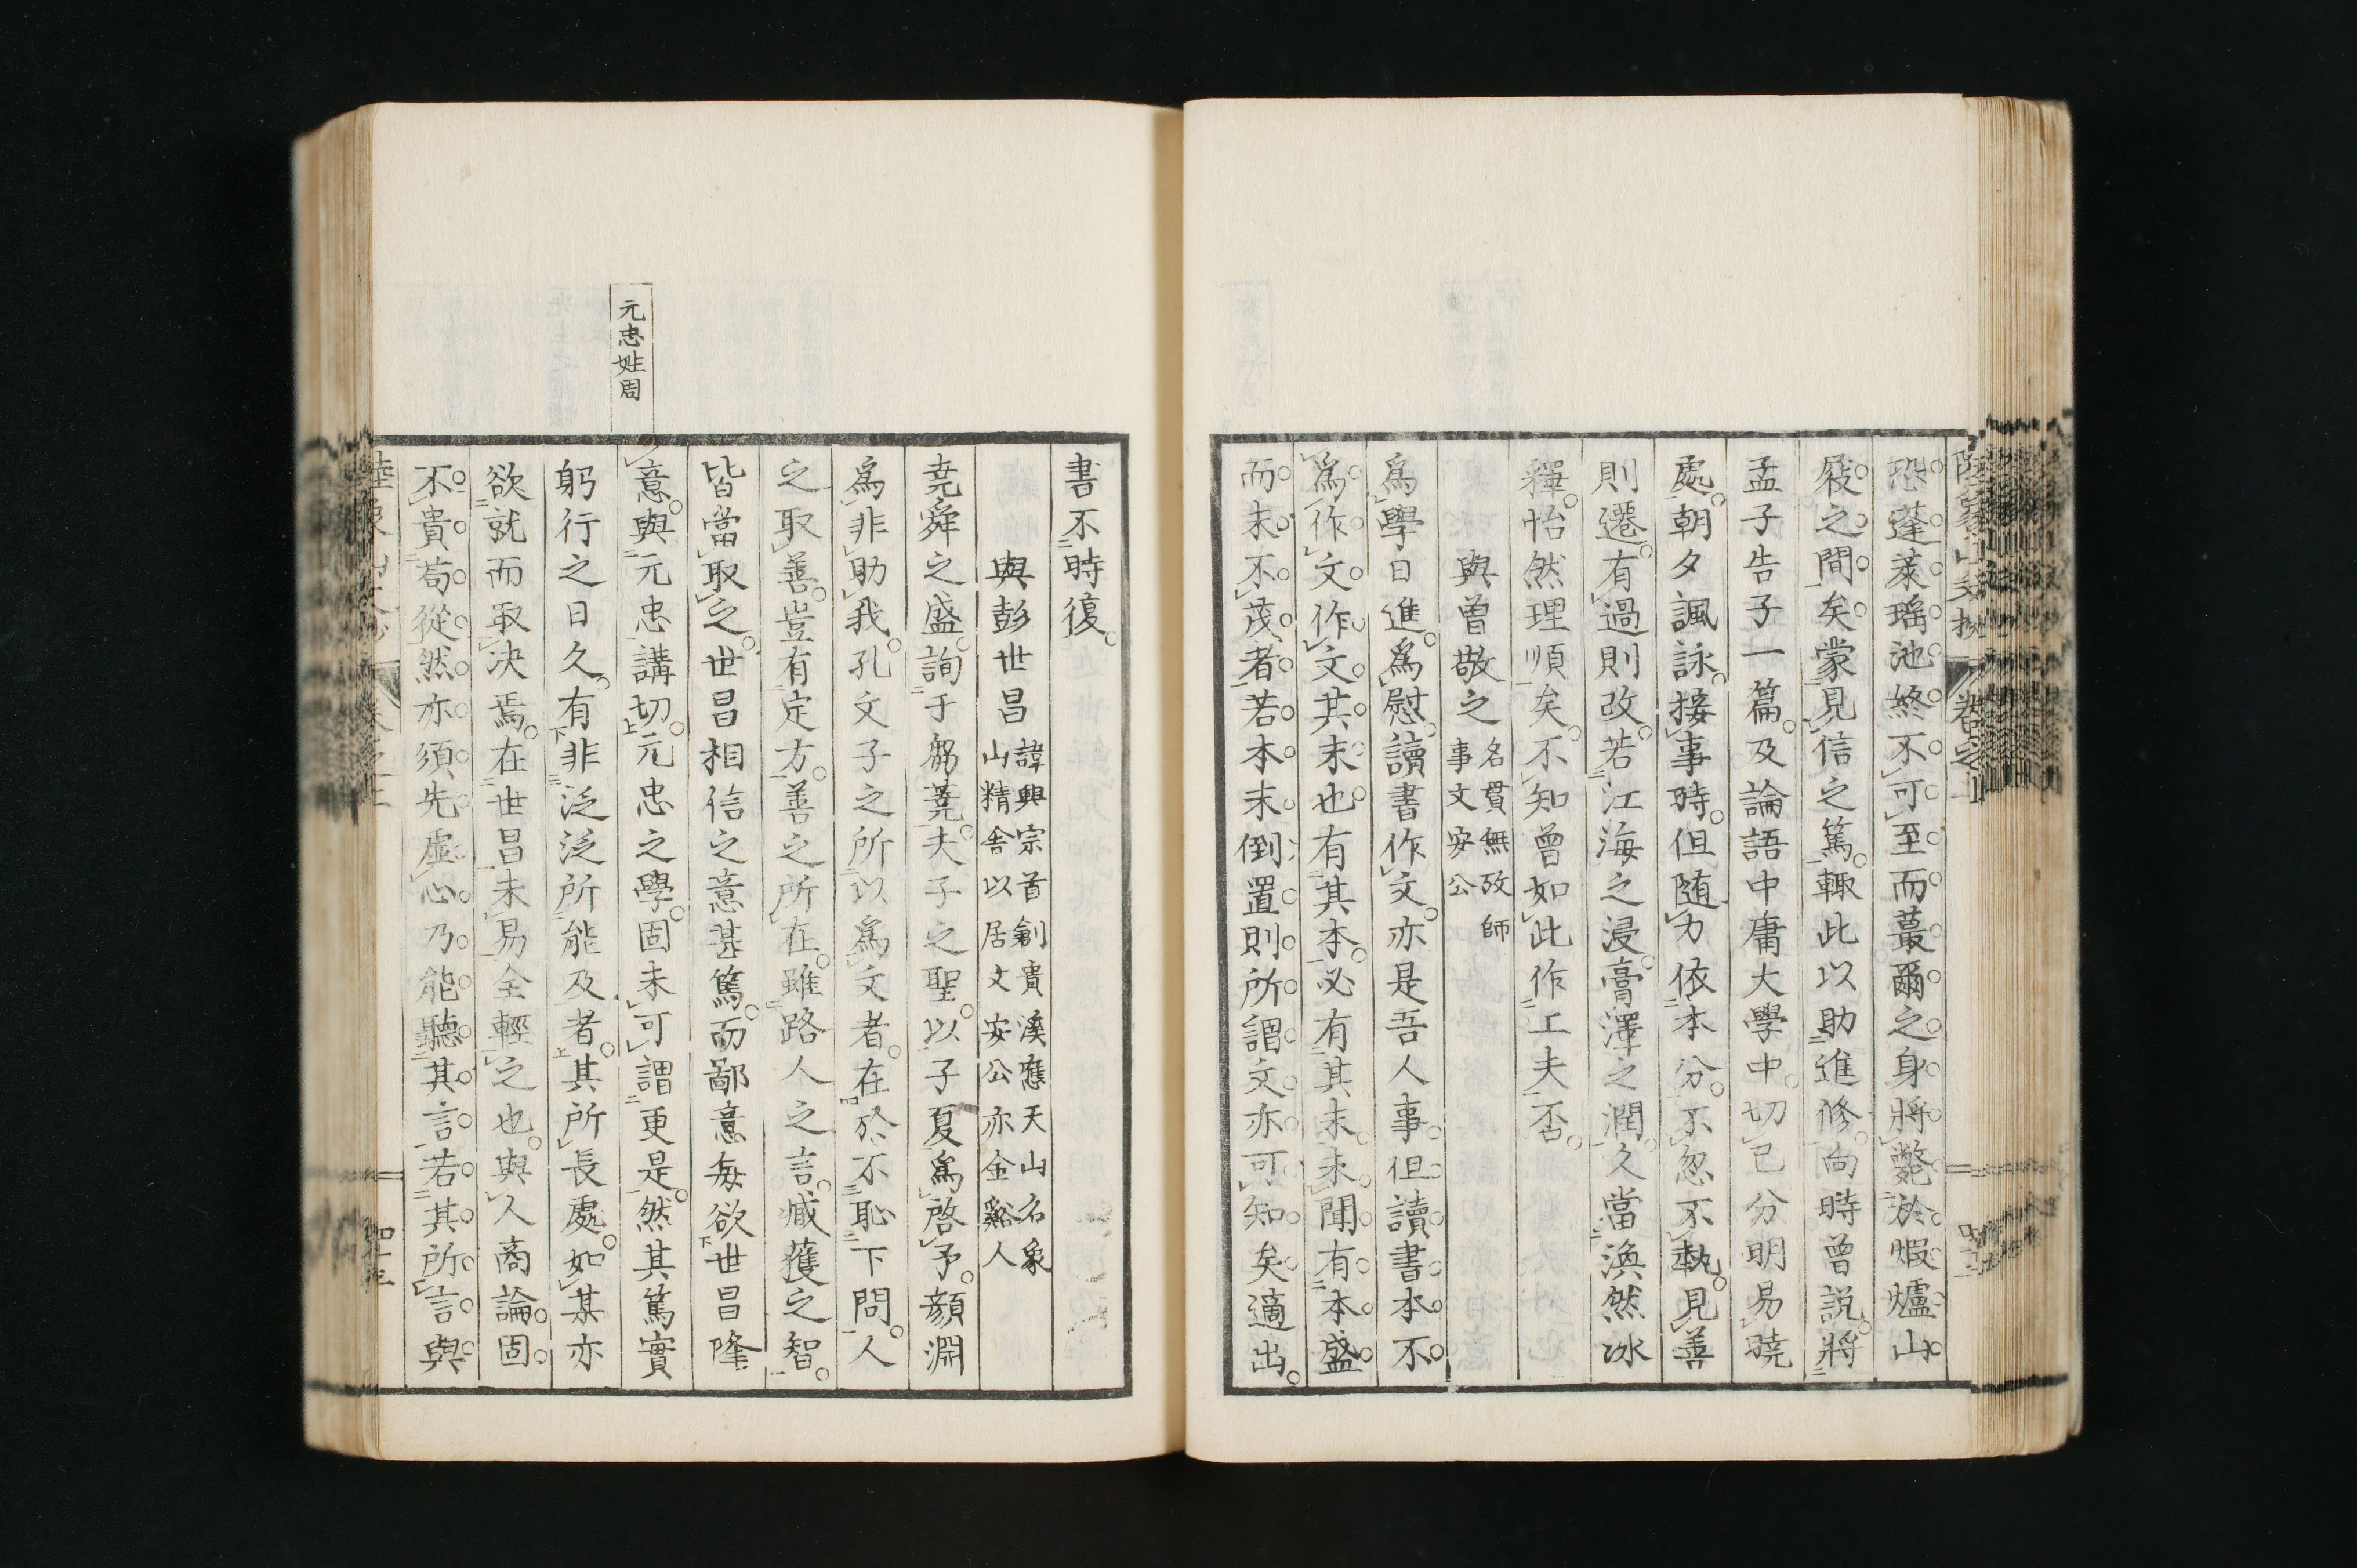 恐蓬萊瑤池終不可至而蕞爾之身將斃於煆爐山
屐之間矣蒙見信之篤輙此以助進修向時曾説將
孟子告子一篇及論語中庸大學中切己分明易曉
處朝夕諷詠接事時但随力依本分不忽不執見善
則遷有過則改若江海之浸膏澤之潤久當渙然冰
釋怡然理順矣不知曾如此作工夫否
與曾敬之
名貫無攷師
事文安公
爲學日進爲慰讀書作文亦是吾人事但讀書本不
爲作文作文其末也有其本必有其末未聞有本盛
而末不茂者若本末倒置則所謂文亦可知矣適出
書不時復
與彭世昌
諱興宗首創貴溪應天山名象
山精舍以居文安公亦金谿人
堯舜之盛詢于芻蕘夫子之聖以子夏爲啓予顔淵
爲非助我孔文子之所以爲文者在於不恥下問人
之取善豈有定方善之所在雖路人之言臧獲之智
皆當取之世昌相信之意甚篤而鄙意每欲世昌隆
元忠姓周
意與元忠講切元忠之學固未可謂更是然其篤實
躬行之日久有非泛泛所能及者其所長處如某亦
欲就而取决焉在世昌未易全輕之也與人商論固
不貴苟從然亦須先虛心乃能聽其言若其所言與